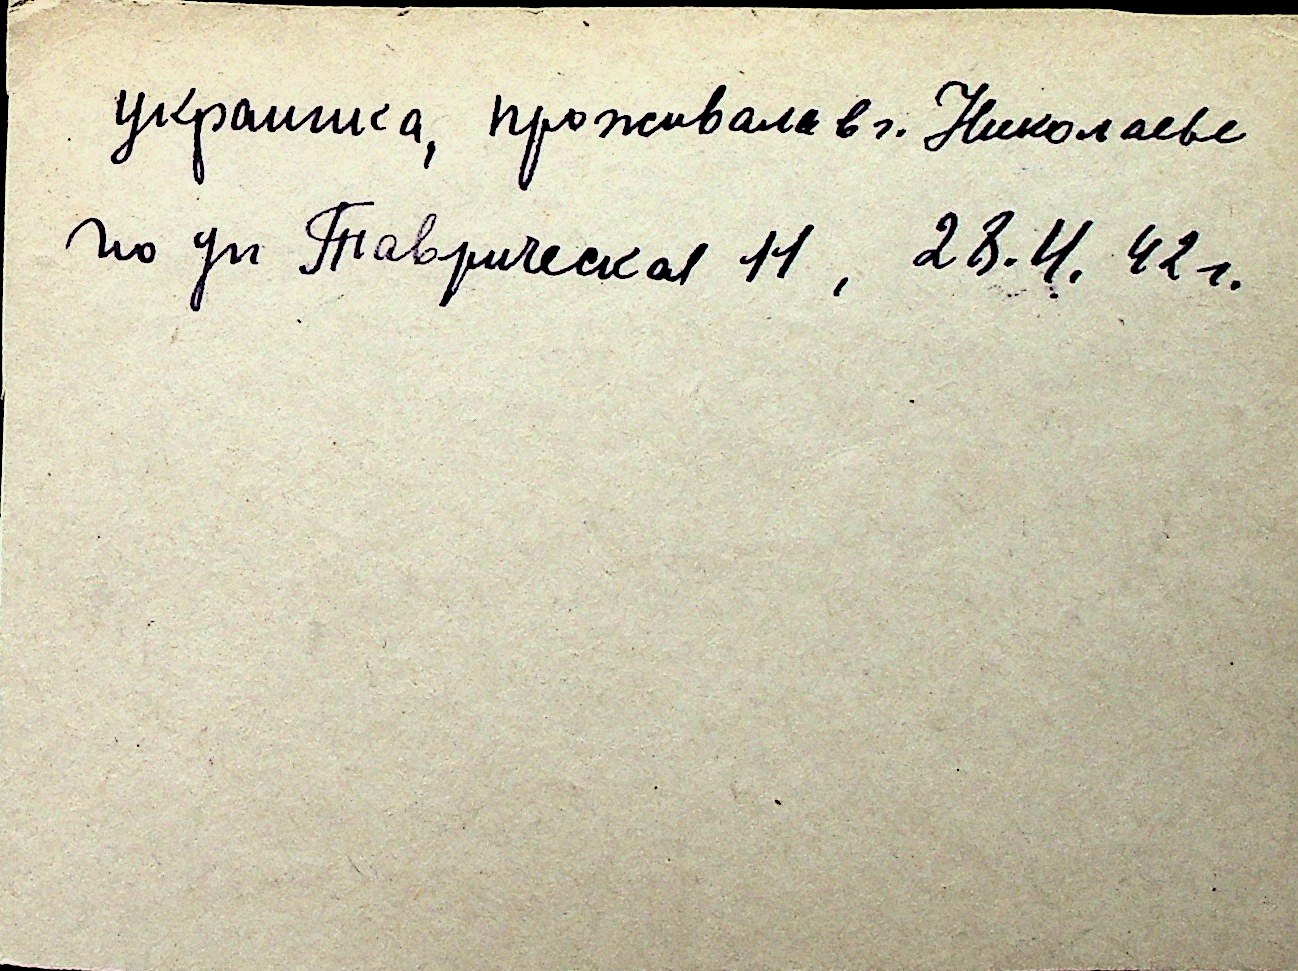 украинка, проживала в г. Николаеве
по ул Таврическая 11, 28.4.42 г.